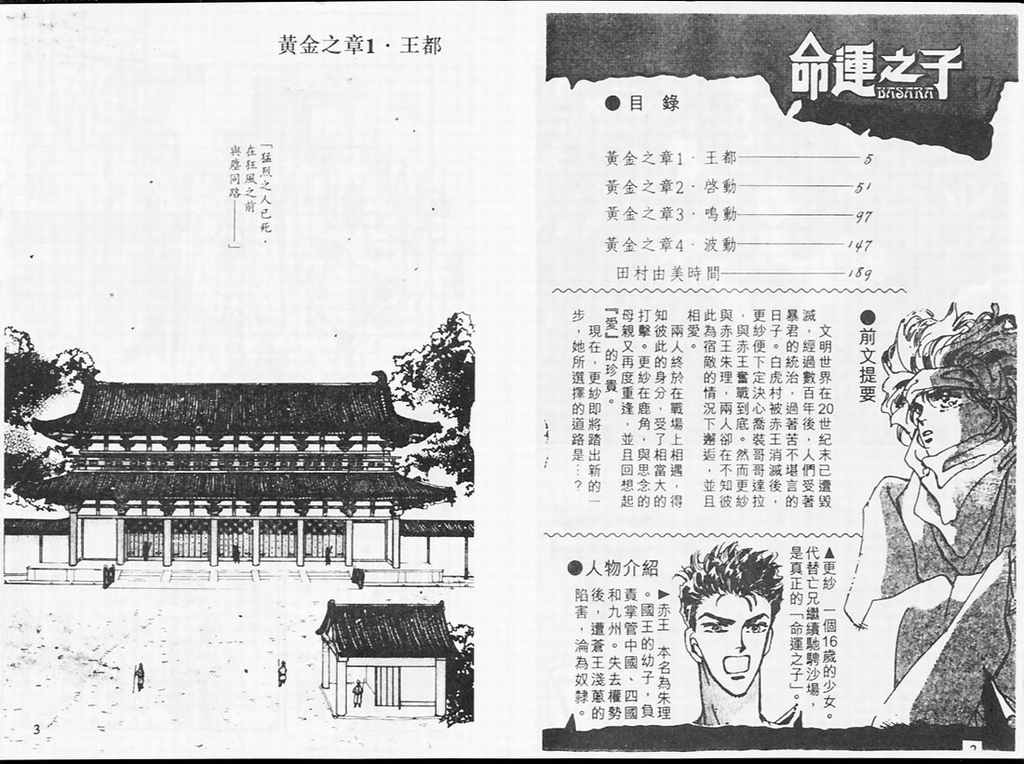 命運之子
BASARA
●目 錄
黃金之章1·王都 5
黃金之章2·啓動 51
黃金之章3·鳴動 97
黃金之章4·波動 147
田村由美時間 189
●前文提要
文明世界在20世紀末已遭毀
滅，經過數百年後，人們受著
暴君的統治，過著苦不堪言的
日子。白虎村被赤王消滅後，
更紗便下定決心喬裝哥哥達拉
，與赤王奮戰到底。然而更紗
與赤王朱理，兩人卻在不知彼
此為宿敵的情況下邂逅，並且
相愛。
兩人終於在戰場上相遇，得
知彼此的身分，受了相當大的
打擊。更紗在鹿角，與思念的
母親又再度重逢，並且回想起
『愛』的珍貴。
現在，更紗即將踏出新的一
步，她所選擇的道路是…？
●人物介紹
▲更紗 一個16歲的少女。
代替亡兄繼續馳騁沙場，
是真正的「命運之子」。
▶赤王 本名為朱理
。國王的幼子，負
責掌管中國、四國
和九州。失去權勢
後，遭蒼王淺蔥的
陷害，淪為奴隸。
2
黃金之章1·王都
「猛烈之人已死，
在狂風之前
與塵同路——」
3